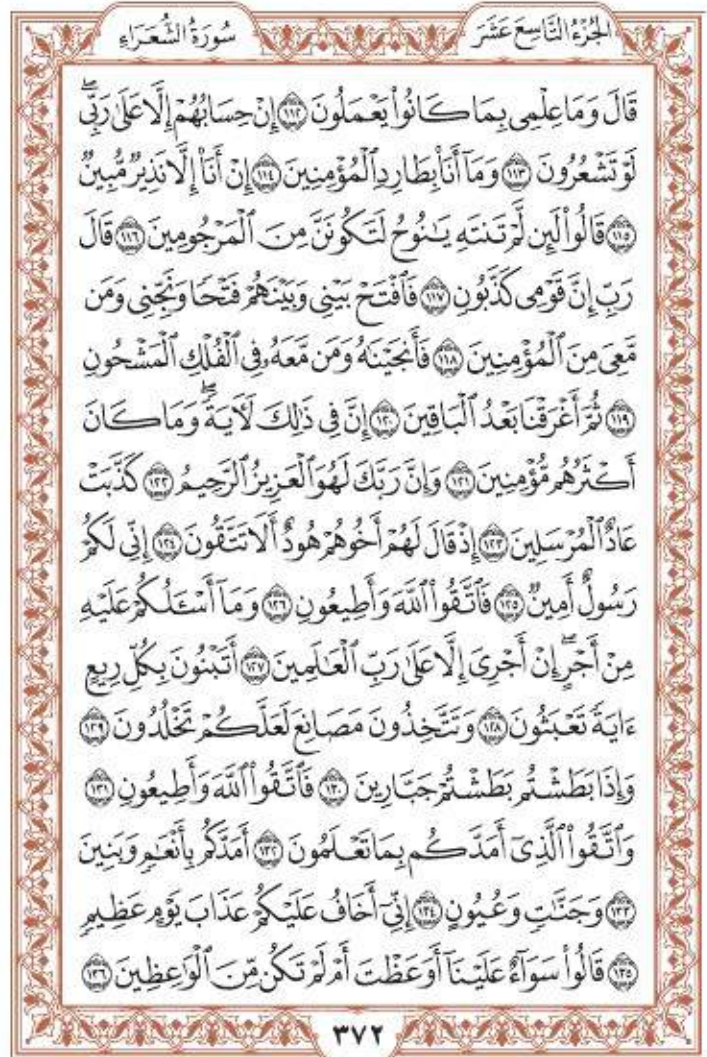 الجُزْءُ التَّاسِعَ عَشَرَ سُورَةُ الشُّعَرَاءِ
قَالَ وَمَا عِلْمِى بِمَا كَانُوا۟ يَعْمَلُونَ ١١٢ إِنْ حِسَابُهُمْ إِلَّا عَلَىٰ رَبِّىۖ
لَوْ تَشْعُرُونَ ١١٣ وَمَآ أَنَا۠ بِطَارِدِ ٱلْمُؤْمِنِينَ ١١٤ إِنْ أَنَا۠ إِلَّا نَذِيرٌ مُّبِينٌ
١١٥ قَالُوا۟ لَئِن لَّمْ تَنتَهِ يَـٰنُوحُ لَتَكُونَنَّ مِنَ ٱلْمَرْجُومِينَ ١١٦ قَالَ
رَبِّ إِنَّ قَوْمِى كَذَّبُونِ ١١٧ فَٱفْتَحْ بَيْنِى وَبَيْنَهُمْ فَتْحًا وَنَجِّنِى وَمَن
مَّعِىَ مِنَ ٱلْمُؤْمِنِينَ ١١٨ فَأَنجَيْنَـٰهُ وَمَن مَّعَهُۥ فِى ٱلْفُلْكِ ٱلْمَشْحُونِ
١١٩ ثُمَّ أَغْرَقْنَا بَعْدُ ٱلْبَاقِينَ ١٢٠ إِنَّ فِى ذَٰلِكَ لَـَٔايَةًۖ وَمَا كَانَ
أَكْثَرُهُم مُّؤْمِنِينَ ١٢١ وَإِنَّ رَبَّكَ لَهُوَ ٱلْعَزِيزُ ٱلرَّحِيمُ ١٢٢ كَذَّبَتْ
عَادٌ ٱلْمُرْسَلِينَ ١٢٣ إِذْ قَالَ لَهُمْ أَخُوهُمْ هُودٌ أَلَا تَتَّقُونَ ١٢٤ إِنِّى لَكُمْ
رَسُولٌ أَمِينٌ ١٢٥ فَٱتَّقُوا۟ ٱللَّهَ وَأَطِيعُونِ ١٢٦ وَمَآ أَسْـَٔلُكُمْ عَلَيْهِ
مِنْ أَجْرٍۖ إِنْ أَجْرِىَ إِلَّا عَلَىٰ رَبِّ ٱلْعَـٰلَمِينَ ١٢٧ أَتَبْنُونَ بِكُلِّ رِيعٍ
ءَايَةً تَعْبَثُونَ ١٢٨ وَتَتَّخِذُونَ مَصَانِعَ لَعَلَّكُمْ تَخْلُدُونَ ١٢٩
وَإِذَا بَطَشْتُم بَطَشْتُمْ جَبَّارِينَ ١٣٠ فَٱتَّقُوا۟ ٱللَّهَ وَأَطِيعُونِ ١٣١
وَٱتَّقُوا۟ ٱلَّذِىٓ أَمَدَّكُم بِمَا تَعْلَمُونَ ١٣٢ أَمَدَّكُم بِأَنْعَـٰمٍ وَبَنِينَ
١٣٣ وَجَنَّـٰتٍ وَعُيُونٍ ١٣٤ إِنِّىٓ أَخَافُ عَلَيْكُمْ عَذَابَ يَوْمٍ عَظِيمٍ
١٣٥ قَالُوا۟ سَوَآءٌ عَلَيْنَآ أَوَعَظْتَ أَمْ لَمْ تَكُن مِّنَ ٱلْوَٰعِظِينَ ١٣٦
٣٧٢